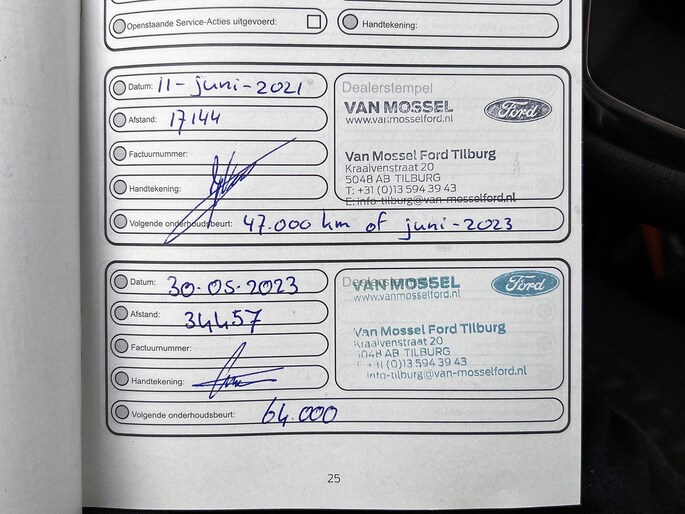 Openstaande Service-Acties uitgevoerd:
Handtekening:
Datum: 11-juni-2021
Afstand: 17144
Factuurnummer:
Handtekening:
Dealerstempel
VAN MOSSEL
www.vanmosselford.nl
Ford
Van Mossel Ford Tilburg
Kraaivenstraat 20
5048 AB TILBURG
T: +31 (0)13 594 39 43
E: info-tilburg@van-mosselford.nl
Volgende onderhoudsbeurt: 47.000 km of juni-2023
Datum: 30-05-2023
Afstand: 34457
Factuurnummer:
Handtekening:
Dealerstempel
VAN MOSSEL
www.vanmosselford.nl
Ford
Van Mossel Ford Tilburg
Kraaivenstraat 20
5048 AB TILBURG
+31 (0)13 594 39 43
info-tilburg@van-mosselford.nl
Volgende onderhoudsbeurt: 64.000
25